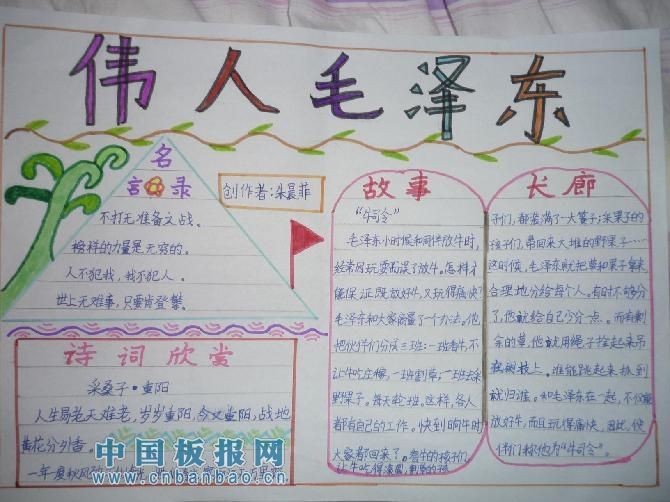 伟人毛泽东
名
言录
不打无准备之战。
榜样的力量是无穷的。
人不犯我,我不犯人。
世上无难事,只要肯登攀。
创作者:朵晨菲
诗词欣赏
采桑子·重阳
人生易老天难老,岁岁重阳,今又重阳,战地
黄花分外香。
一年一度秋风
故事
"牛司令"
毛泽东小时候和同伴放牛时,
经常因玩耍耽误了放牛。怎样才
能保证既放好牛,又玩得痛快?
毛泽东和大家商量了一个办法。他
把伙伴们分成三班:一班看牛,不
让牛吃庄稼,一班割草;一班去采
野果子。每天轮班。这样,各人
都有自己的工作。快到晌午时
大家都回来了。看牛的孩子们
让牛吃得滚圆,割草的孩
长廊
子们,都装满了一大篓子;采果子的
孩子们,带回来大堆的野果子……
这时候,毛泽东就把草和果子拿来,
合理地分给每个人。有时不够分
了,他就给自己少分一点。而有剩
余的草,他就用绳子拴起来吊
在树枝上。谁能跳起来,抓到
就归谁。和毛泽东在一起,不仅能
放好牛,而且玩得痛快,因此,伙
伴们称他为"牛司令"。
中国板报网
www.cnbanbao.cn